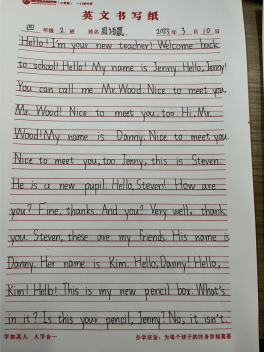 英文书写纸
四 年级 2 班 姓名 2023年 3 月 10 日
Hello! I'm your new teacher! Welcome back
to school! Hello! My name is Jenny. Hello, Jenny!
You can call me Mr. Wood. Nice to meet you,
Mr. Wood! Nice to meet you, too. Hi, Mr.
Wood! My name is Danny. Nice to meet you.
Nice to meet you, too. Jenny, this is Steven.
He is a new pupil. Hello, Steven! How are
you? Fine, thanks. And you? Very well, thank
you. Steven, these are my friends. His name is
Danny. Her name is Kim. Hello, Danny! Hello,
Kim! Hello! This is my new pencil box. What's
in it? Is this your pencil, Jenny? No, it isn't.
学知高人 人字合一 办学宗旨：为每个孩子的终身幸福奠基